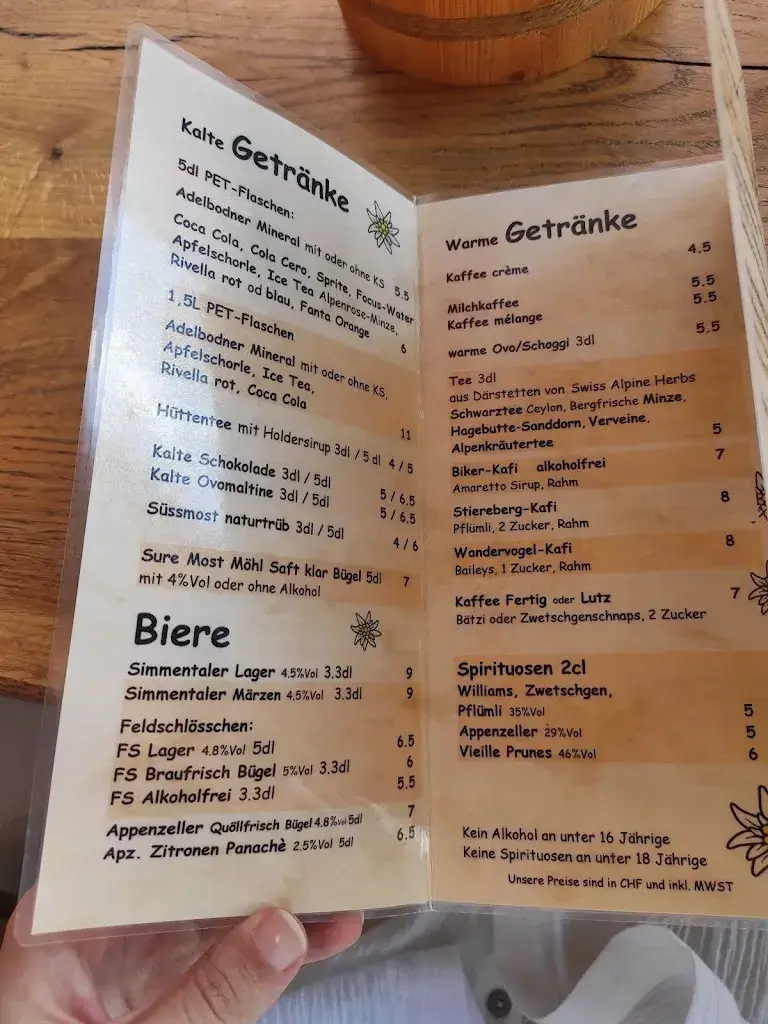 Kalte Getränke
5dl PET-Flaschen:
Adelbodner Mineral mit oder ohne KS 5.5
Coca Cola, Cola Cero, Sprite, Focus-Water
Apfelschorle, Ice Tea Alpenrose-Minze,
Rivella rot od blau, Fanta Orange 6
1,5L PET-Flaschen
Adelbodner Mineral mit oder ohne KS,
Apfelschorle, Ice Tea,
Rivella rot, Coca Cola 11
Hüttentee mit Holdersirup 3dl / 5 dl 4 / 5
Kalte Schokolade 3dl / 5dl 5 / 6.5
Kalte Ovomaltine 3dl / 5dl 5 / 6.5
Süssmost naturtrüb 3dl / 5dl 4 / 6
Sure Most Möhl Saft klar Bügel 5dl 7
mit 4%Vol oder ohne Alkohol
Biere
Simmentaler Lager 4.5%Vol 3.3dl 9
Simmentaler Märzen 4.5%Vol 3.3dl 9
Feldschlösschen:
FS Lager 4.8%Vol 5dl 6.5
FS Braufrisch Bügel 5%Vol 3.3dl 6
FS Alkoholfrei 3.3dl 5.5
Appenzeller Quöllfrisch Bügel 4.8%Vol 5dl 7
Apz. Zitronen Panachè 2.5%Vol 5dl 6.5
Warme Getränke
Kaffee crème 4.5
Milchkaffee 5.5
Kaffee mélange 5.5
warme Ovo/Schoggi 3dl 5.5
Tee 3dl
aus Därstetten von Swiss Alpine Herbs
Schwarztee Ceylon, Bergfrische Minze,
Hagebutte-Sanddorn, Verveine,
Alpenkräutertee 5
Biker-Kafi alkoholfrei 7
Amaretto Sirup, Rahm
Stiereberg-Kafi 8
Pflümli, 2 Zucker, Rahm
Wandervogel-Kafi 8
Baileys, 1 Zucker, Rahm
Kaffee Fertig oder Lutz 7
Bätzi oder Zwetschgenschnaps, 2 Zucker
Spirituosen 2cl
Williams, Zwetschgen,
Pflümli 35%Vol 5
Appenzeller 29%Vol 5
Vieille Prunes 46%Vol 6
Kein Alkohol an unter 16 Jährige
Keine Spirituosen an unter 18 Jährige
Unsere Preise sind in CHF und inkl. MWST